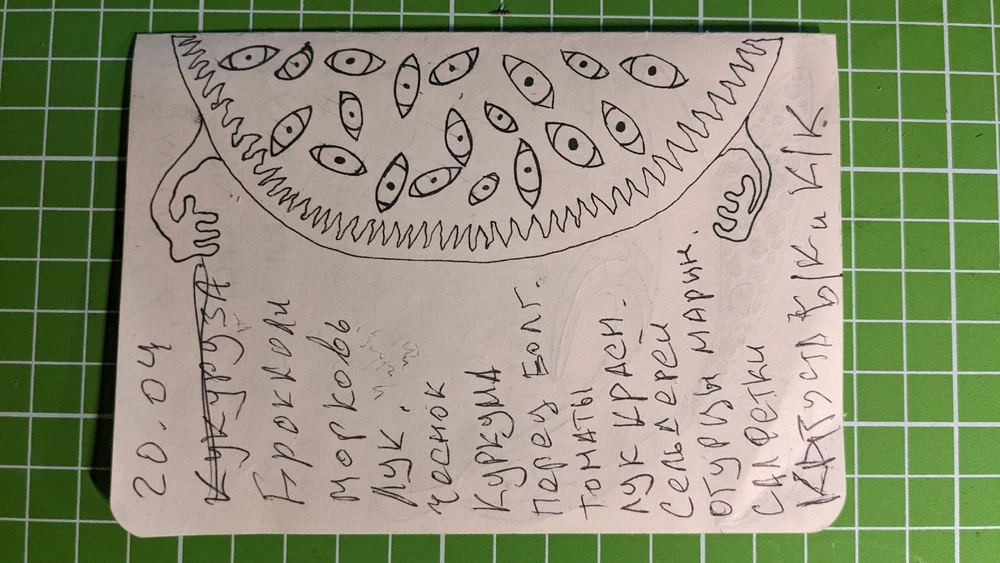 20.04
Кукуруза
Брокколи
Морковь
Лук.
чеснок
Куркума
Перец Болг.
томаты
лук красн.
Сельдерей
огурцы марин.
салфетки
Капуста